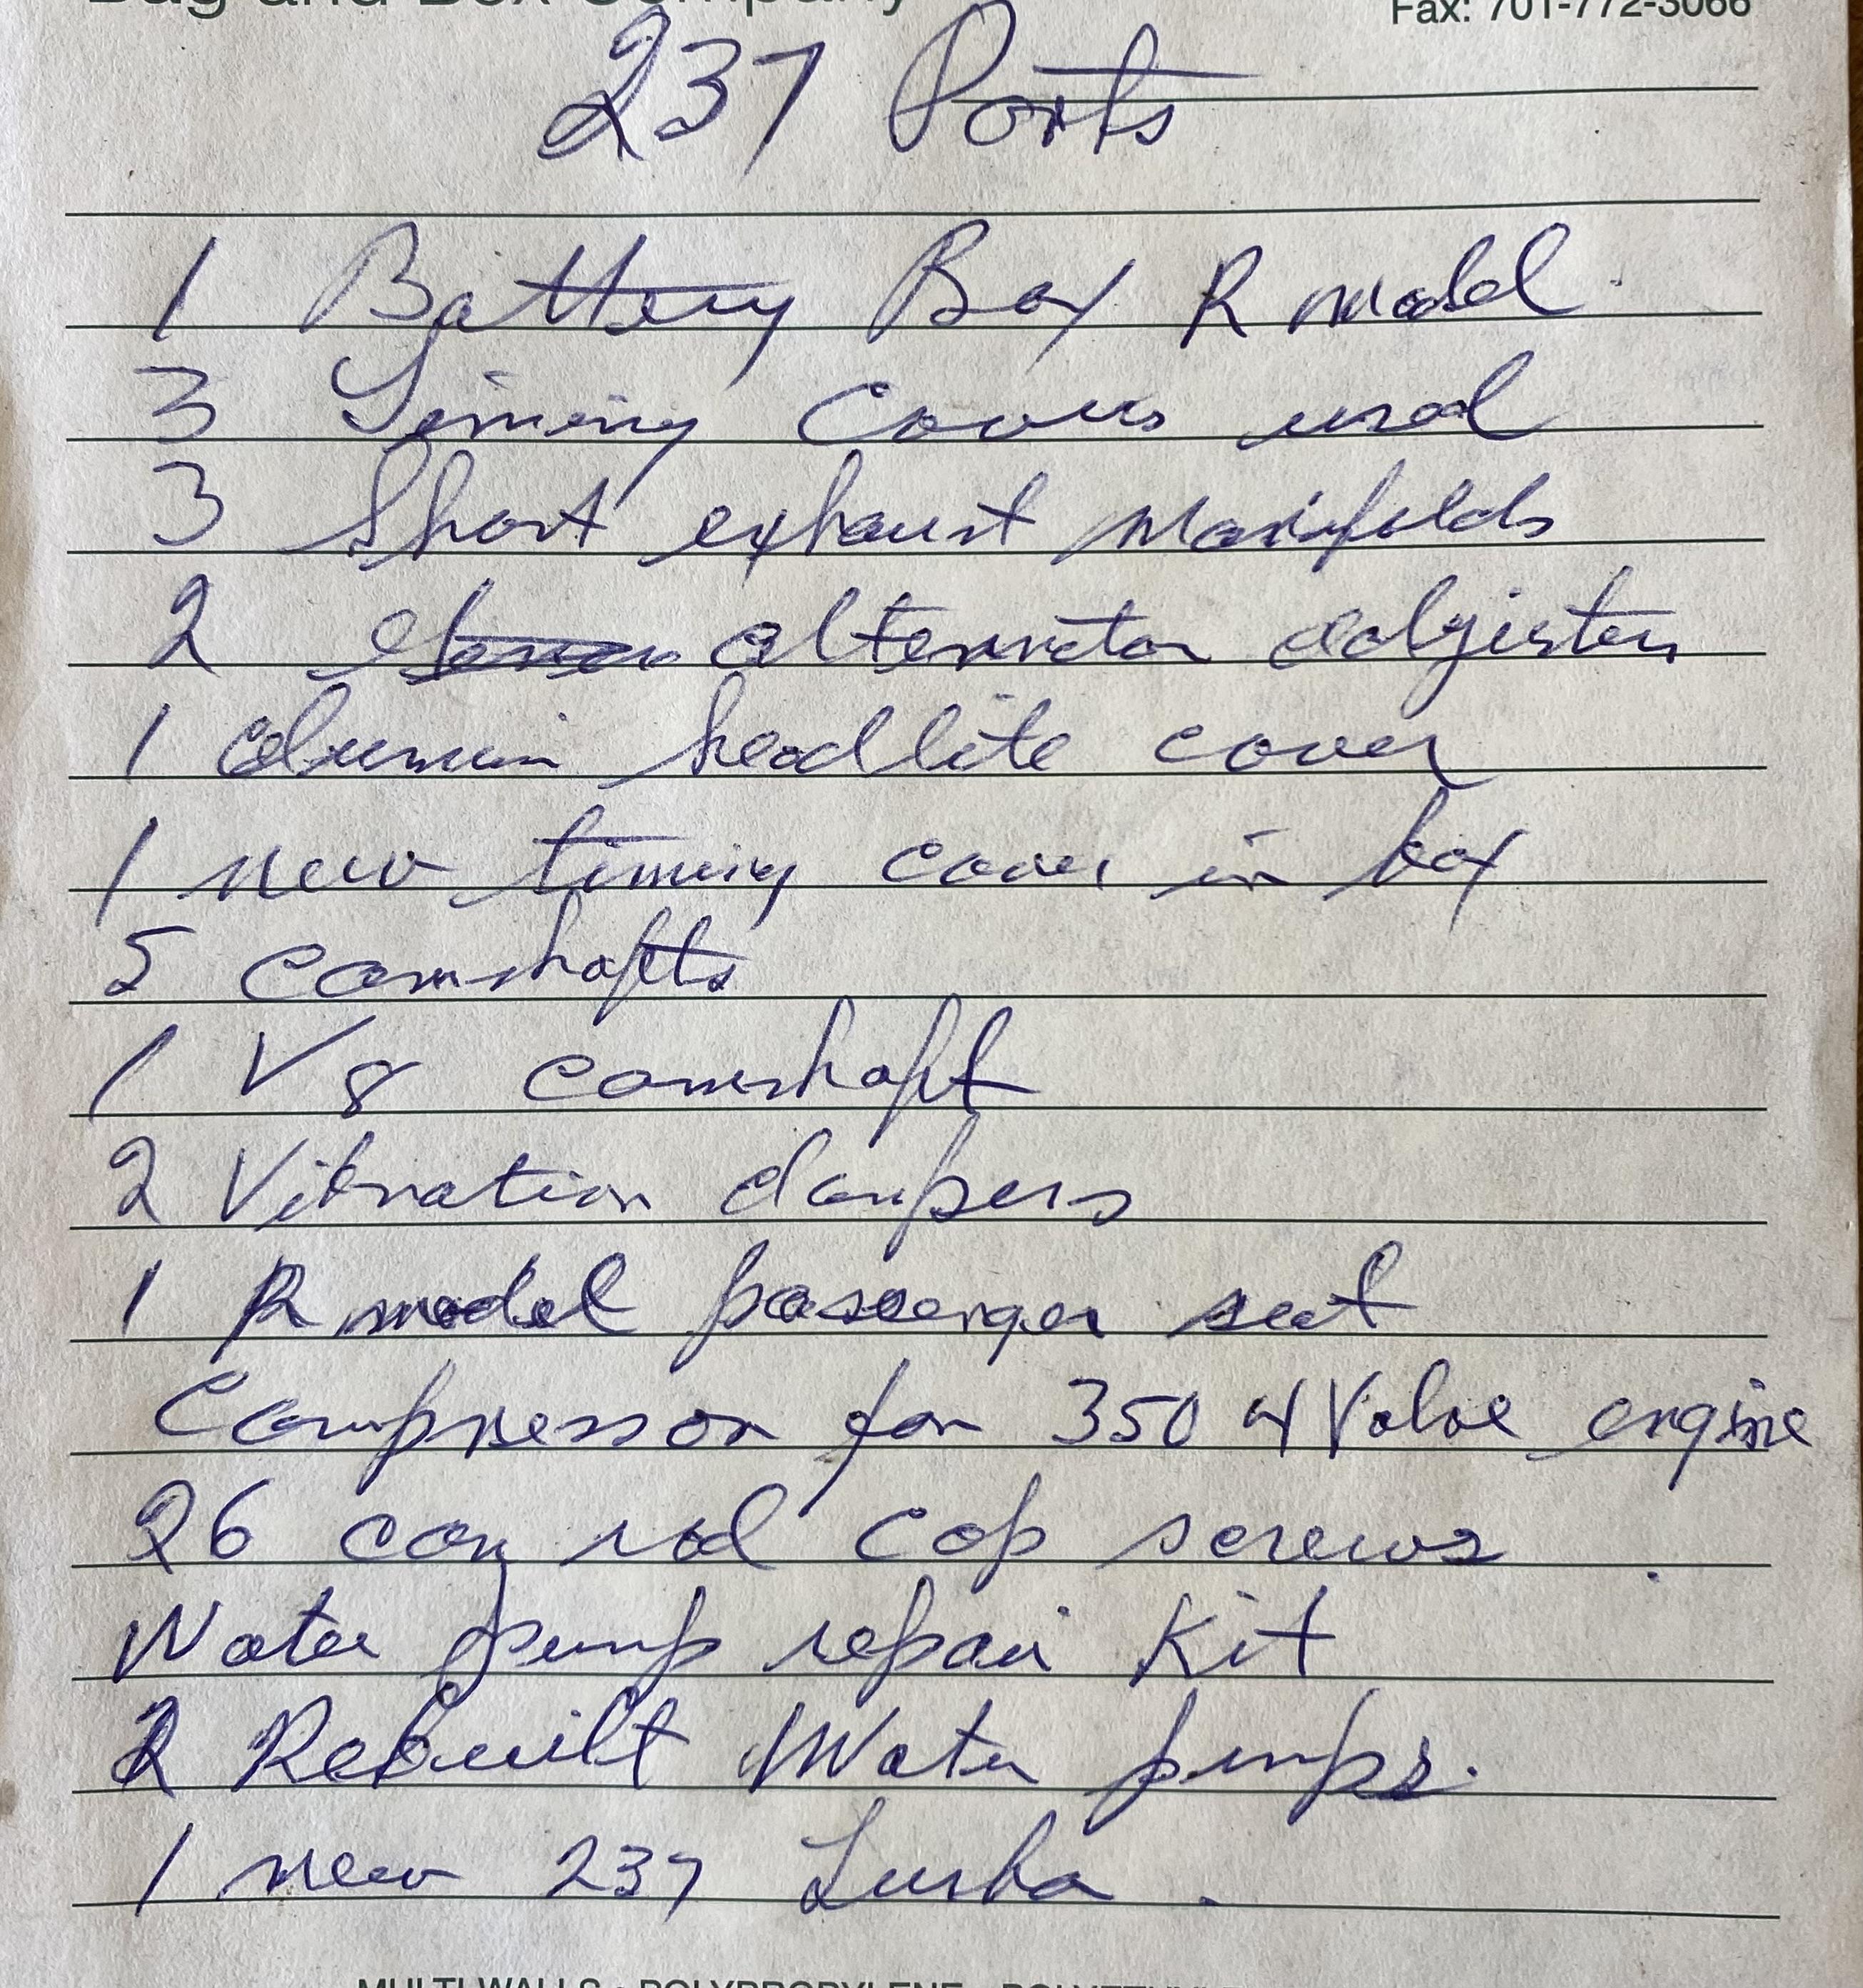 Bag and Box Company
Fax: 701-772-3066
237 Parts
1 Battery Box R model
3 Timing Covers used
3 Short exhaust manifolds
2 alternator adgisters
1 alumin headlite cover
1 new timing cover in box
5 camshafts
1 V8 camshaft
2 Vibration dampers
1 R model passenger seat
Compressor for 350 4 Valve engine
26 con rod cap screws
Water pump repair Kit
2 Rebuilt Water pumps.
1 new 237 Turbo.
MULTI WALLS • POLYPROPYLENE •